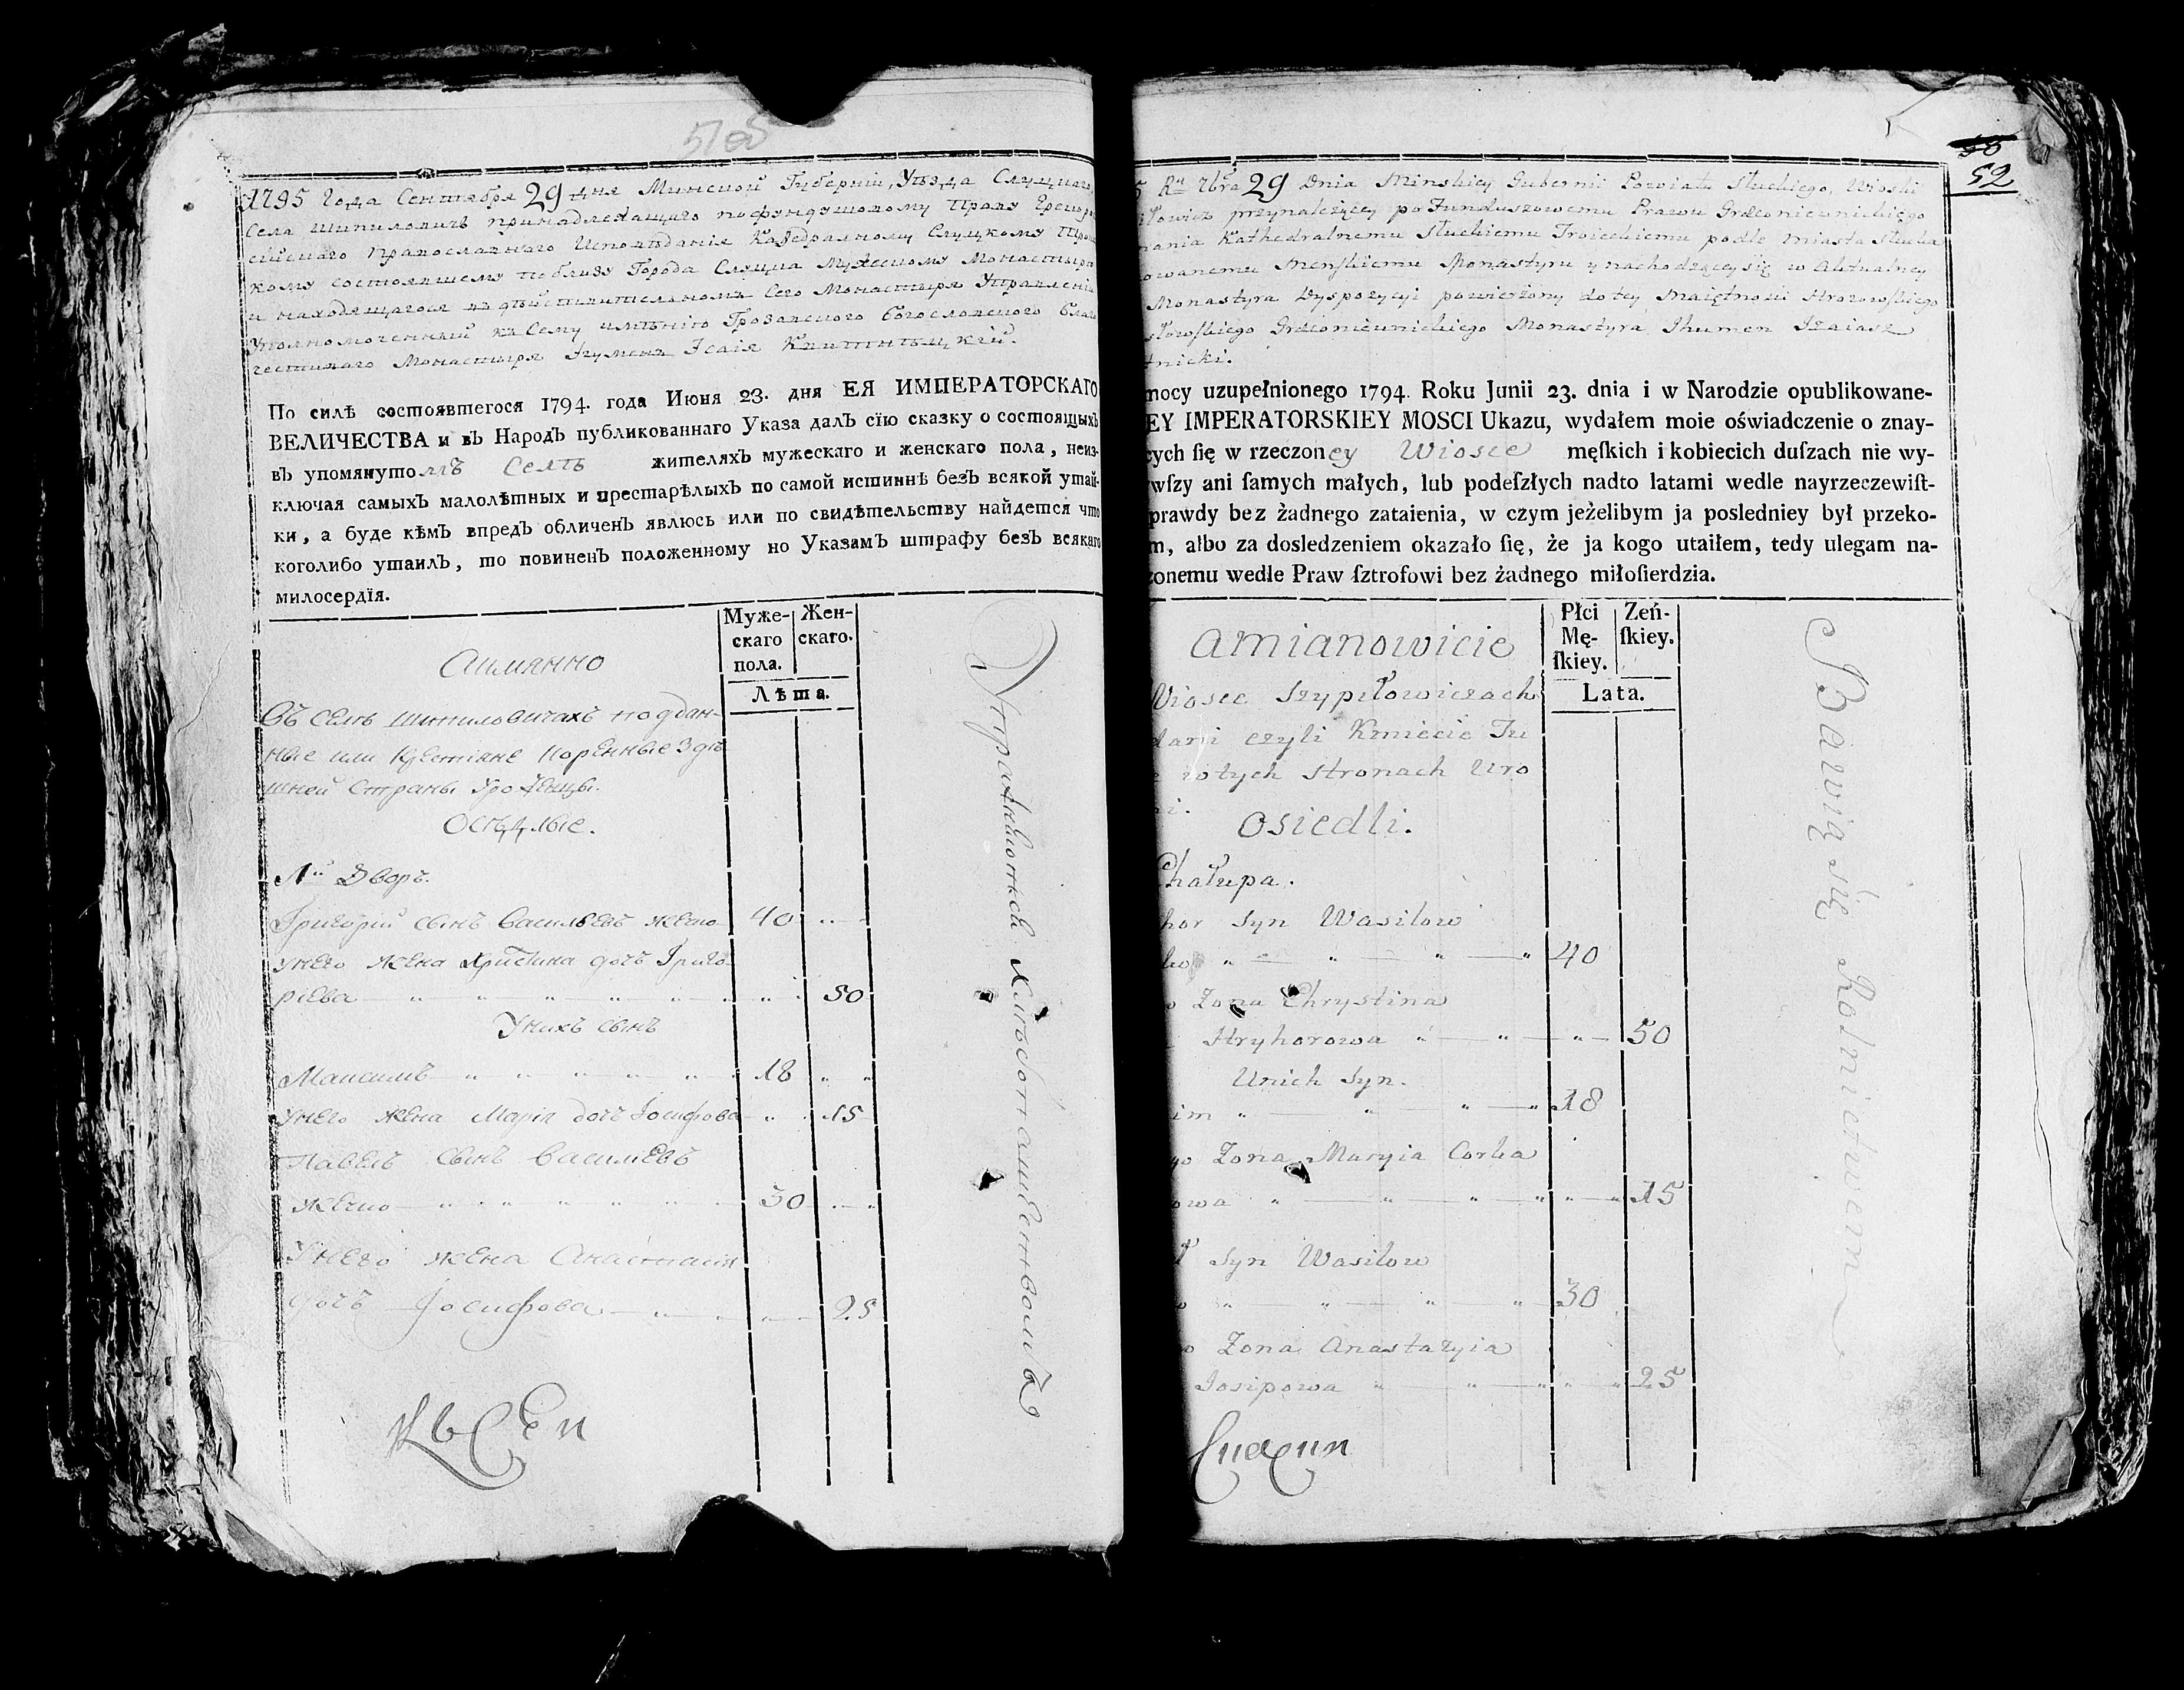 51об
1795 Года Сентября 29 дня Минской Губерніи, Уѣзда Слуцкаго,
Села Шипиловичъ принадлежащаго пофундушовому Праву Грекоро
сійскаго Православнаго Исповѣданія Кафедралному Слуцкому Трои
кому состоявшему поблизу Города Слуцка Мужескому Монастырю
и находящагося въ дѣйствительномъ Сего Монастыря Управленіи
Уполномоченный къ Сему имѣнію Грозовского Богословского Благо
честиваго Монастыря Ігуменъ Ісаія
По силѣ состоявшегося 1794. года Июня 23. дня ЕЯ ИМПЕРАТОРСКАГО
ВЕЛИЧЕСТВА и въ Народъ публикованнаго Указа далъ сїю сказку о состоящыхъ
въ упомянутомъ Селѣ жителяхъ мужескаго и женскаго пола, неиз-
ключая самыхъ малолѣтных и престарѣлыхъ по самой истиннѣ безъ всякой утай-
ки, а буде кѣмъ впредъ обличенъ явлюсь или по свидѣтельству найдется что
коголибо утаилъ, то повиненъ положенному но Указамъ штрафу безъ всякаго
милосердїя.
Муже-
скаго
пола.
Жен-
скаго.
Лѣта.
Аимянно
Въ селѣ Шипиловичахъ поддан-
ные или Крестіяне Коренные Здѣ
шней Страны Уроженцы.
Осѣдлые.
1й Дворъ.
Григорій сынъ Васильевъ жечко 40
Унего жена Христина дочь Григо
ріева 50
Унихъ сынъ
Максимъ 18
Унего жена Марія дочь Іосифова 15
Павелъ сынъ Васильевъ
жечко 30
Унего жена Анастасія
дочь Іосифова 25
Упражняются хлѣбопашествомъ
58
52
5 Rů 7bra 29 Dnia Minskiey Gubernii Powiatu Słuckiego, Wioski
iłowicz przynależącey po Funduszowemu Prawu Græconieunickiego
nania Kathedralnemu Słuckiemu Troieckiemu podle Miasta Słucka
owanemu Menskiemu Monastyru y nachodzącey się w Aktualney
Monastyra Dyspozycyi powierzony do tey Maiętnosci Hrozowskiego
słowskiego Græconieunickiego Monastyra Jhumen Izaiasz
tnicki.
mocy uzupełnionego 1794. Roku Junii 23. dnia i w Narodzie opublikowane-
EY IMPERATORSKIEY MOSCI Ukazu, wydałem moie oświadczenie o znay-
cych ſię w rzeczoney Wiosce męſkich i kobiecich duſzach nie wy-
wſzy ani ſamych małych, lub podeſzłych nadto latami wedle nayrzeczewiſt-
prawdy bez żadnego zataienia, w czym jeżelibym ja posledniey był przeko-
m, albo za dosledzeniem okazało ſię, że ja kogo utaiłem, tedy ulegam na-
zonemu wedle Praw ſztrofowi bez żadnego miłoſierdzia.
Płci
Mę-
ſkiey.
Zeń-
ſkiey.
Lata.
amianowicie
Wiosce Szypiłowiczach
darii czyli Kmiecie Tu
e wtych stronach Uro
ni.
Osiedli.
Chałupa.
hor Syn Wasilow
ko 40
o Zona Chrystina
Hryhorowa 50
Unich Syn.
im 18
go Zona Maryia Corka
owa 15
ł Syn Wasilow
o 30
o Zona Anastazyia
Josipowa 25
Bawią się Rolnictwem